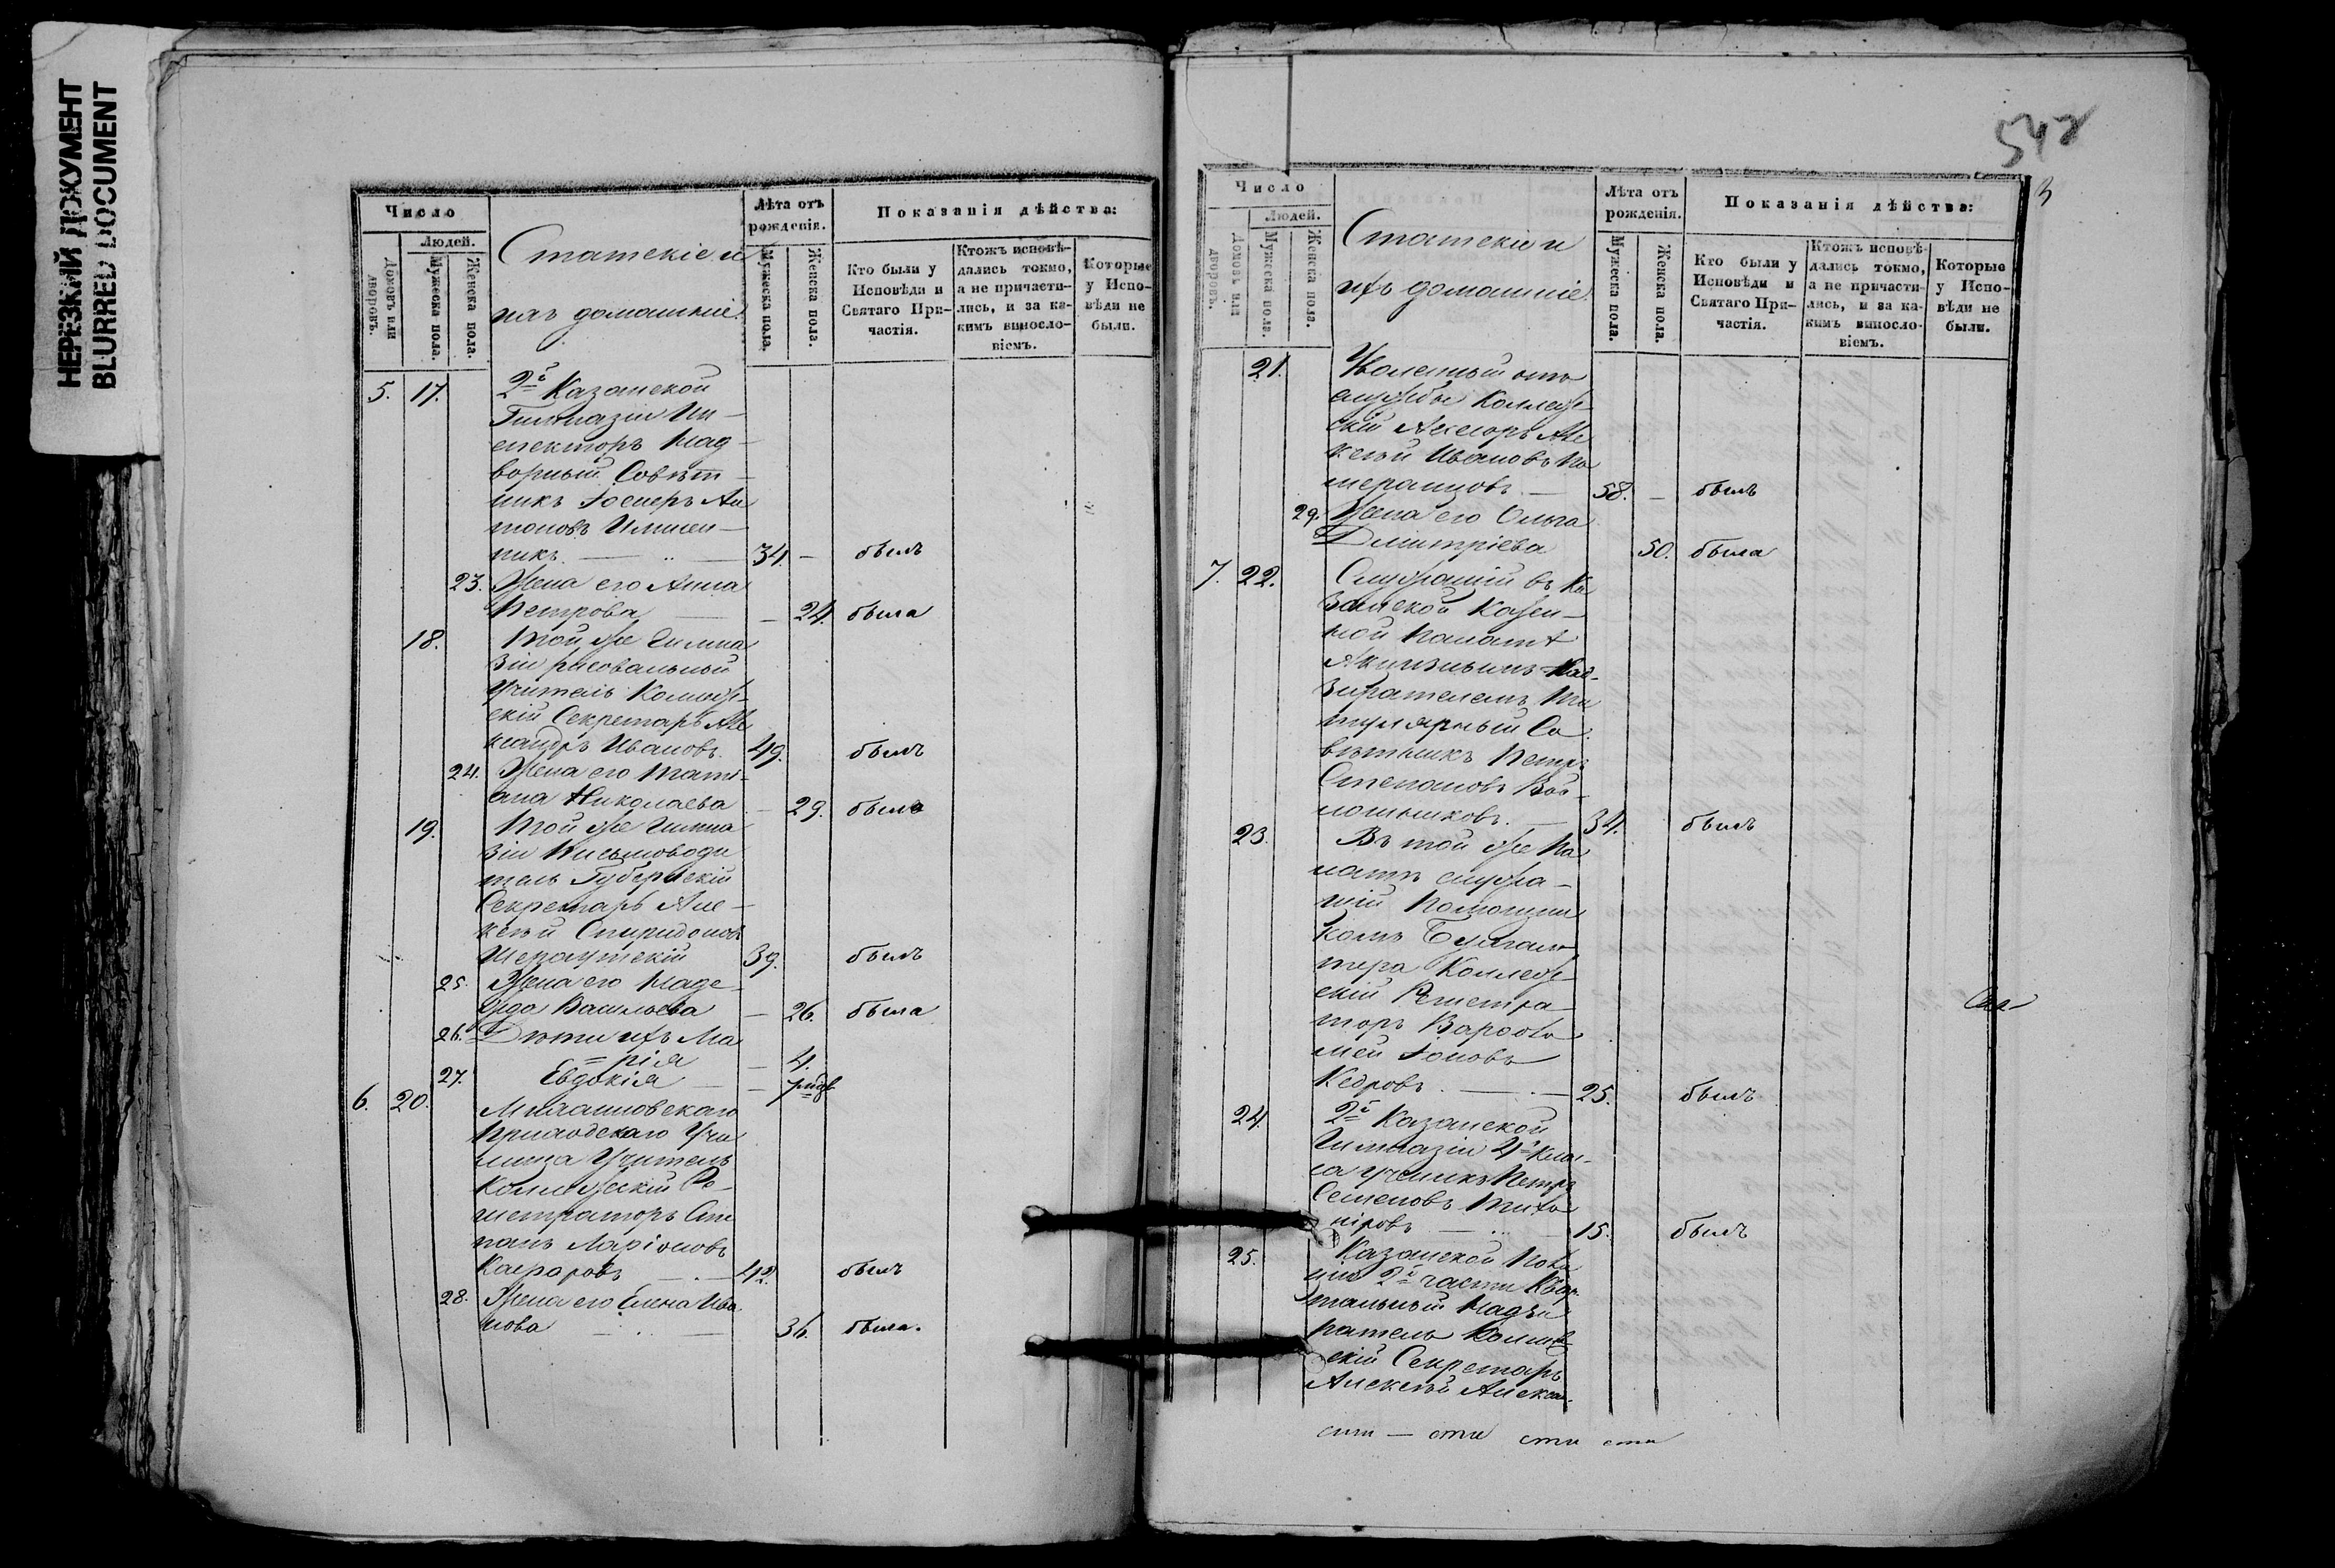 НЕРЕЗКИЙ ДОКУМЕНТ
BLURRED DOCUMENT
Число
Людей.
Домовъ или дворовъ.
Мужеска пола.
Женска пола.
Статскіе и
ихъ домашніе.
Лѣта отъ рожденія.
Мужеска пола.
Женска пола.
Показанія дѣйства:
Кто были у Исповѣди и Святаго Причастія.
Ктожъ исповѣдались токмо, а не причастились, и за какимъ винословіемъ.
Которые у Исповѣди не были.
5. 17. 2й Казанской
Гимназіи Ин-
спекторъ Над-
ворный Совѣт-
никъ Іосифъ Ан
тоновъ
никъ. 34. - былъ
23. Жена его Анна
Петрова - 24. была
18. Той же Гимна
зіи рисовальный
Учитель Коллеж-
скій Секретарь Але
ксандръ Ивановъ. 49. былъ
24. Жена его Тати-
ана Николаева - 29. была
19. Той же Гимна
зіи Письмоводи
тель Губернскій
Секретарь Але-
ксѣй Спиридоновъ
39. былъ
25. Жена его Наде-
жда Васильева - 26. была
26. Дѣти ихъ Ма
рія - 4.
27. Евдокія -
6. 20.
Приходскаго Учи
лища Учитель
Коллежскій Ре-
гистраторъ Сте
панъ Ларіоновъ
42. былъ
28. Жена его Елена Ива
нова 36. была.
542
3
Число
Людей.
Домовъ или дворовъ.
Мужеска пола.
Женска пола.
Статскіе и
ихъ домашніе.
Лѣта отъ рожденія.
Мужеска пола.
Женска пола.
Показанія дѣйства:
Кто были у Исповѣди и Святаго Причастія.
Ктожъ исповѣдались токмо, а не причастились, и за какимъ винословіемъ.
Которые у Исповѣди не были.
21. Уволенный отъ
службы Коллеж-
скій Ассесоръ Але
ксѣй Ивановъ
58. - былъ
29. Жена его Ольга
Димитріева 50. была
7. 22. Служащій въ Ка
занской Казен-
ной Палатѣ
Акцизнымъ Над-
зирателемъ Ти
тулярный Со
вѣтникъ Петръ
Степановъ
34. былъ
23. Въ той же Па
латѣ служа-
щій Помощни
комъ Бухгал
тера Коллеж-
скій Регистра
торъ Варѳоло
мей Іоновъ
Кедровъ. 25. былъ
24. 2й Казанской
Гимназіи 4го Клас-
са ученикъ Петръ
Семеновъ Тихо
міровъ 15. былъ
25. Казанской Поли
ціи 2й части Квар-
тальный Надзи
ратель Коллеж
скій Секретарь
Алексѣй Алекса-